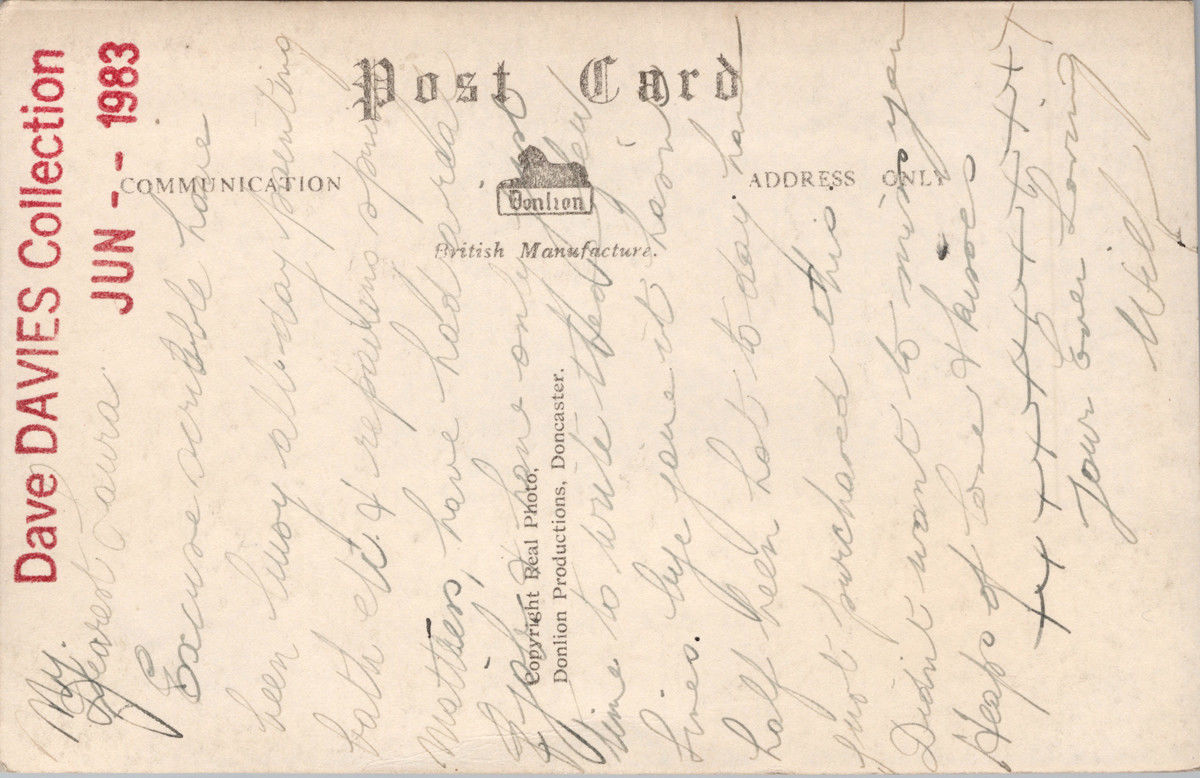 Post Card
COMMUNICATION
ADDRESS ONLY
Donlion
British Manufacture.
Copyright Real Photo,
Donlion Productions, Doncaster.
Dave DAVIES Collection
JUN -- 1983
My
Dearest Laura
Excuse scribble have
been busy all day painting
bath etc. & repairing spring
Mattress, have had cards
have only just
time to write these few
lines. bye you it
half been hot to day have
just purchased this.
Didnt want to miss you
Heaps of Love & kisses
xxxxxxxxxxx
Your Ever Loving
Will